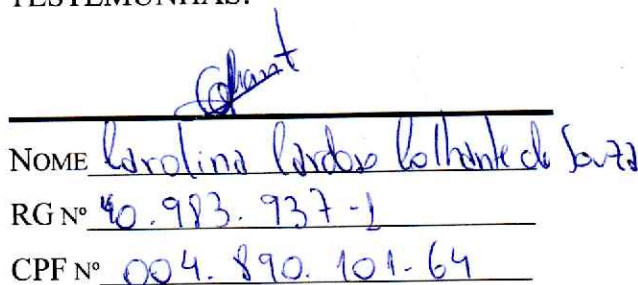 TESTEMUNHAS:
NOME Carolina Cardoso Colhante de Souza
RG Nº 40.983.937-1
CPF Nº 004.890.101-64